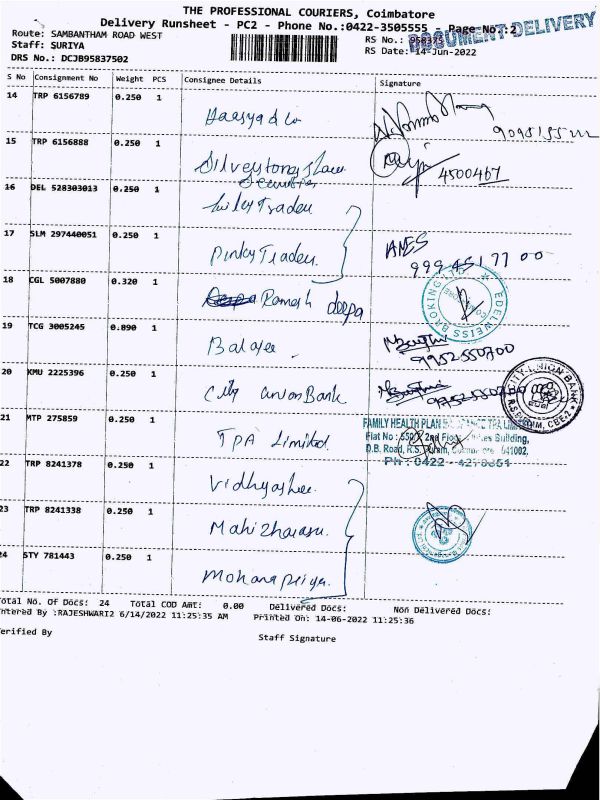 THE PROFESSIONAL COURIERS, Coimbatore
Delivery Runsheet - PC2 - Phone No.:0422-3505555 - Page No.:2
DOCUMENT DELIVERY
Route: SAMBANTHAM ROAD WEST
Staff: SURIYA
DRS No.: DCJB95837502
RS No.: 958375
RS Date: 14-Jun-2022
S No Consignment No Weight PCS Consignee Details Signature
14 TRP 6156789 0.250 1
9095155
15 TRP 6156888 0.250 1
Securities
4500467
16 DEL 528303013 0.250 1 Traders
17 SLM 297440051 0.250 1 Pinky Traders.
18 CGL 5007880 0.320 1 Ramesh deepa
EDELWEISS BROKING LTD
COIMBATORE
19 TCG 3005245 0.890 1 Balajee
9952550700
20 KMU 2225396 0.250 1 City Union Bank
CITY UNION BANK
R.S.PURAM, CBE-2
21 MTP 275859 0.250 1 TPA Limited.
FAMILY HEALTH PLAN INSURANCE TPA LIMITED
Flat No : 2nd Floor, Building,
D.B. Road, R.S. Puram, Coimbatore 641002,
Ph : 0422 -
22 TRP 8241378 0.250 1 Vidhyashree.
23 TRP 8241338 0.250 1 Mahizharasu.
24 STY 781443 0.250 1 Mohanapriya.
Total No. Of Docs: 24 Total COD Amt: 0.00 Delivered Docs: Non Delivered Docs:
Entered By :RAJESHWARI2 6/14/2022 11:25:35 AM Printed On: 14-06-2022 11:25:36
Verified By Staff Signature